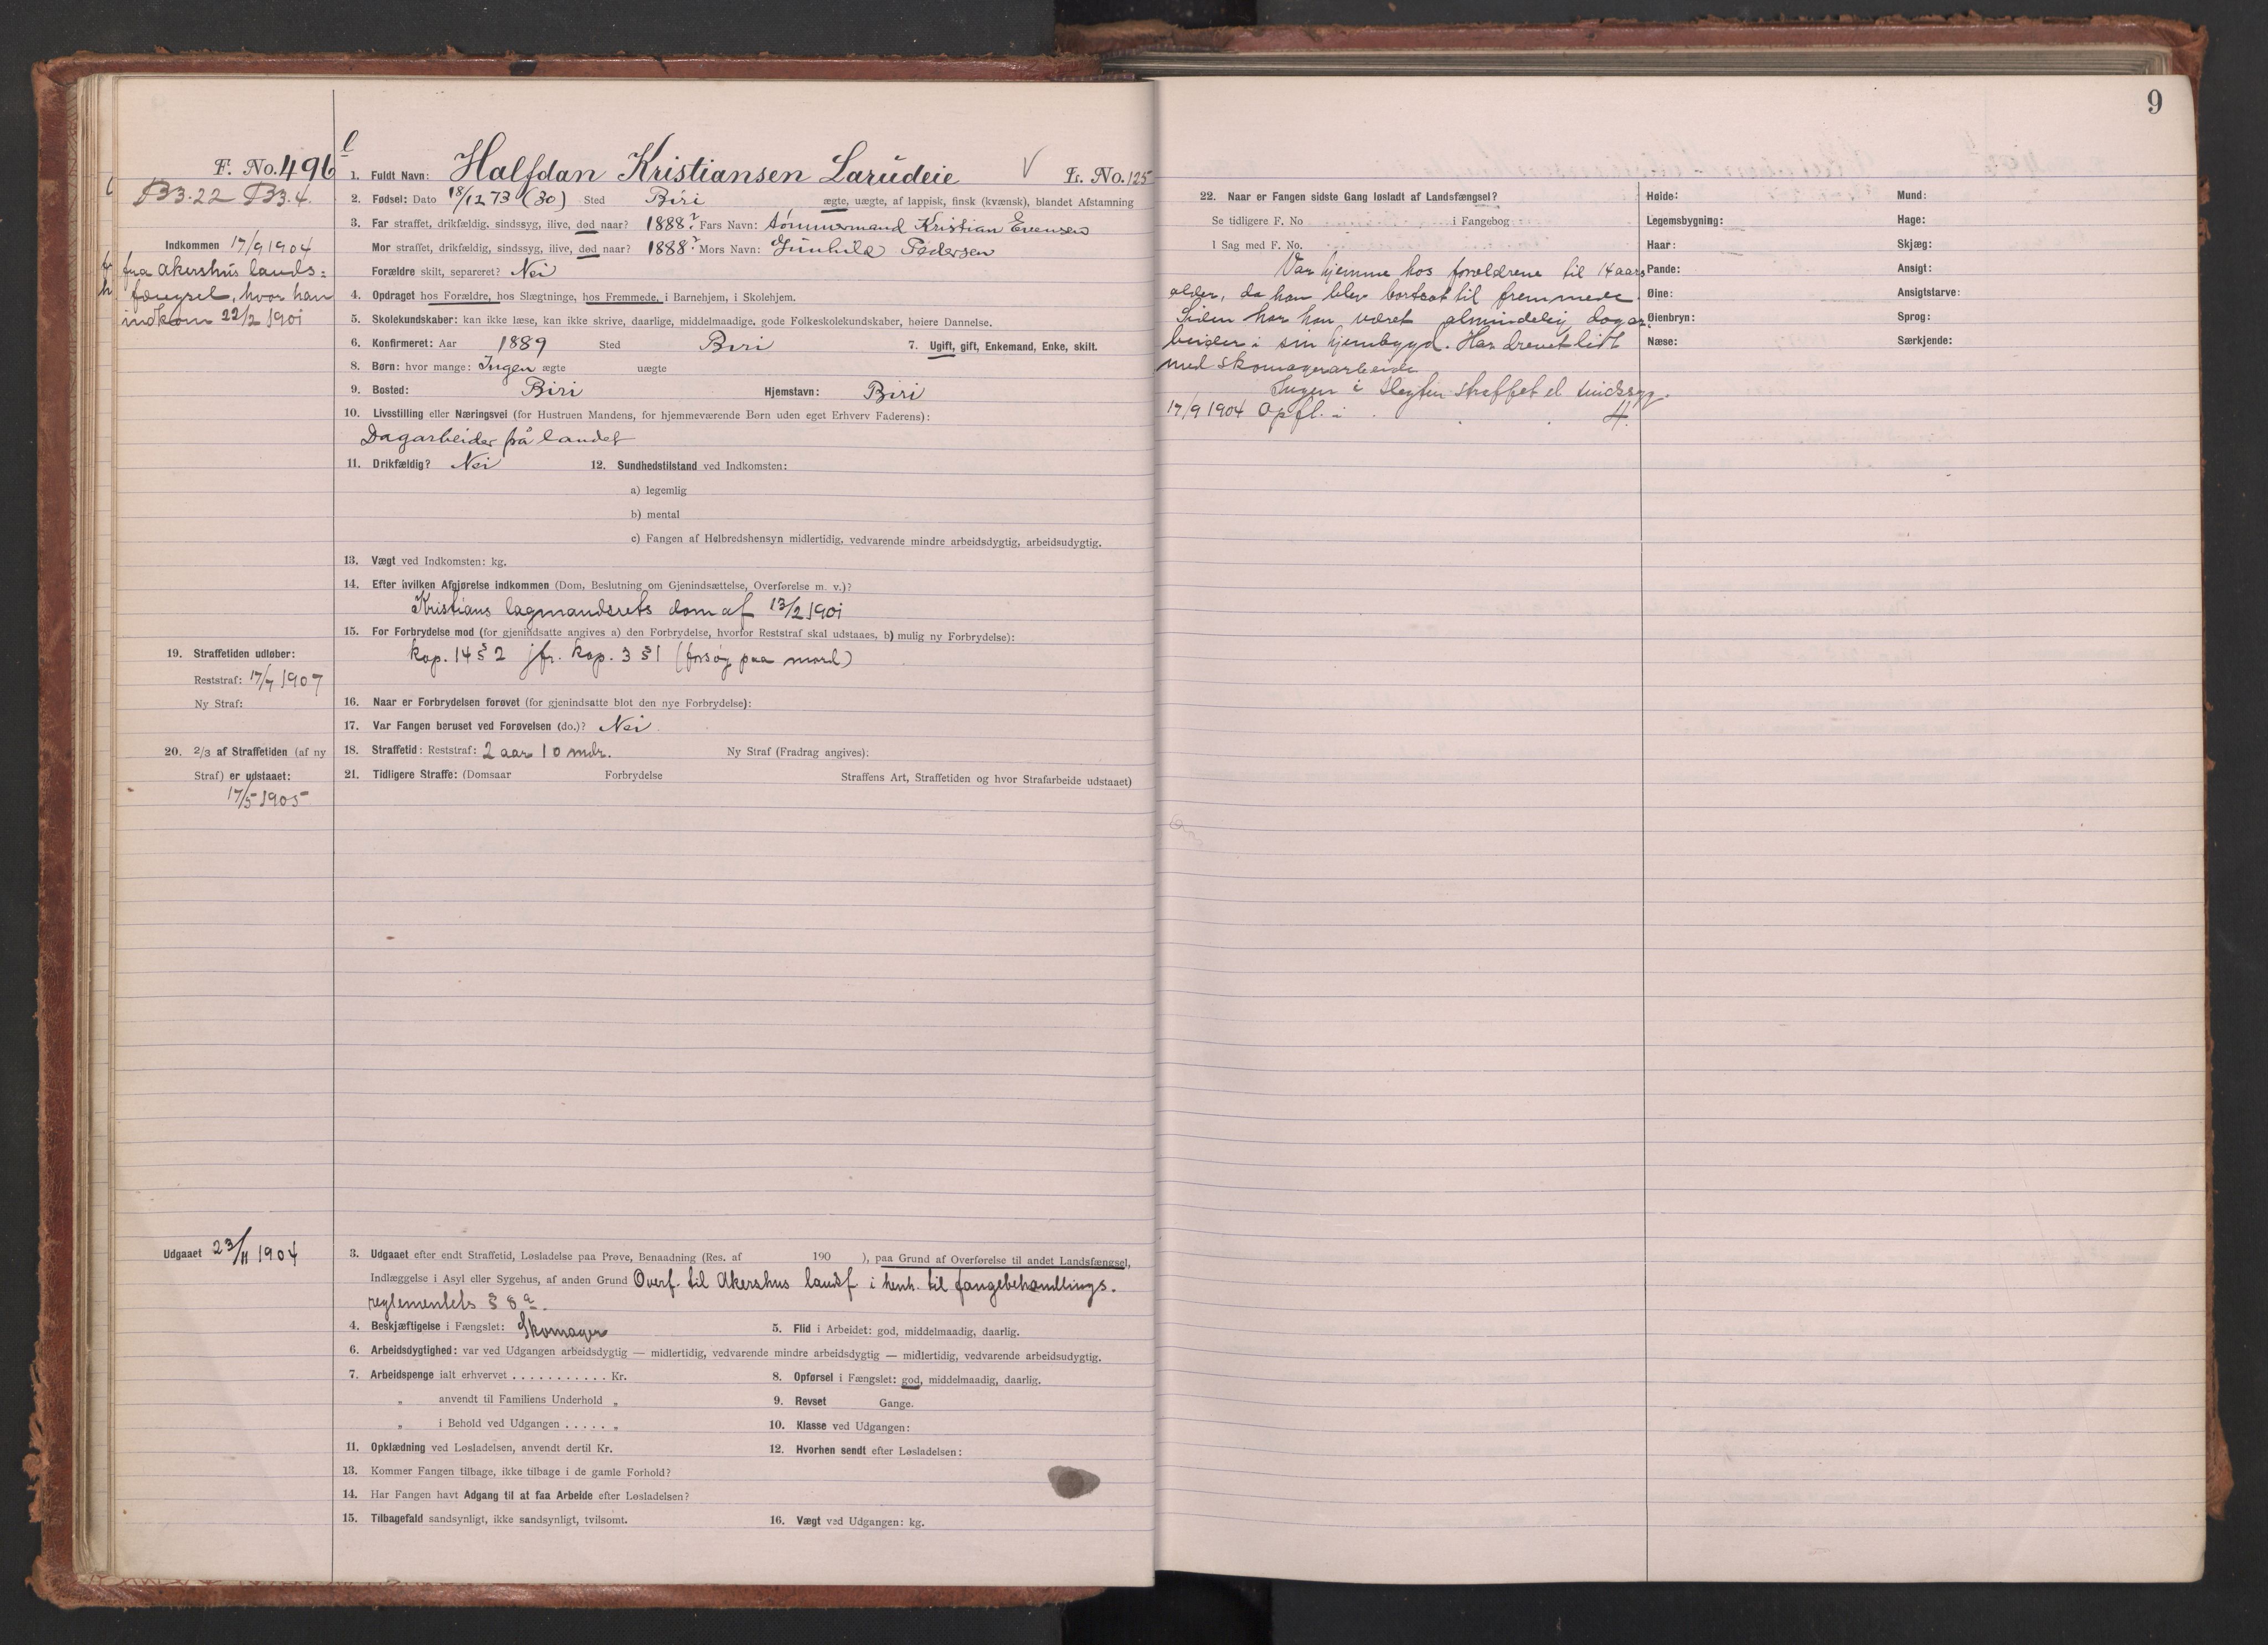 9
l
F. No. 496
1. Fuldt Navn: Halfdan Kristiansen Larudeie V L. No. 125
B3.22 B3.4.
2. Fødsel: Dato 18/12 73 (30) Sted Biri ægte, uægte, af lappisk, finsk (kvænsk), blandet Afstamning
3. Far straffet, drikfældig, sindssyg, ilive, død naar? 1888? Fars Navn: tømmermand Kristian Evensen
Mor straffet, drikfældig, sindssyg, ilive, død naar? 1888? Mors Navn: Gunhild Pedersen
Forældre skilt, separeret? Nei
4. Opdraget hos Forældre, hos Slægtninge, hos Fremmede, i Barnehjem, i Skolehjem.
5. Skolekundskaber: kan ikke læse, kan ikke skrive, daarlige, middelmaadige, gode Folkeskolekundskaber, høiere Dannelse.
6. Konfirmeret: Aar 1889 Sted Biri 7. Ugift, gift, Enkemand, Enke, skilt.
8. Børn: hvor mange: Ingen ægte uægte
9. Bosted: Biri Hjemstavn: Biri
10. Livsstilling eller Næringsvei (for Hustruen Mandens, for hjemmeværende Børn uden eget Erhverv Faderens):
Dagarbeider på landet
11. Drikfældig? Nei 12. Sundhedstilstand ved Indkomsten:
a) legemlig
b) mental
c) Fangen af Helbredshensyn midlertidig, vedvarende mindre arbeidsdygtig, arbeidsudygtig.
13. Vægt ved Indkomsten: kg.
14. Efter hvilken Afgjørelse indkommen (Dom, Beslutning om Gjenindsættelse, Overførelse m. v.)?
Kristians lagmandsrets dom af 13/2 1901
15. For Forbrydelse mod (for gjenindsatte angives a) den Forbrydelse, hvorfor Reststraf skal udstaaes, b) mulig ny Forbrydelse):
kap. 14 § 2 jfr. kap. 3 § 1 (forsøg paa mord)
16. Naar er Forbrydelsen forøvet (for gjenindsatte blot den nye Forbrydelse):
17. Var Fangen beruset ved Forøvelsen (do.)? Nei
18. Straffetid: Reststraf: 2 aar 10 mdr. Ny Straf (Fradrag angives):
21. Tidligere Straffe: (Domsaar Forbrydelse Straffens Art, Straffetiden og hvor Strafarbeide udstaaet)
Indkommen 17/9 1904
fra akershus lands=
fængsel, hvor han
indkom 22/2 1901
19. Straffetiden udløber:
Reststraf: 17/7 1907
Ny Straf:
20. 2/3 af Straffetiden (af ny
Straf) er udstaaet:
17/5 1905
Udgaaet 23/11 1904
3. Udgaaet efter endt Straffetid, Løsladelse paa Prøve, Benaadning (Res. af 190 ), paa Grund af Overførelse til andet Landsfængsel,
Indlæggelse i Asyl eller Sygehus, af anden Grund Overf. til Akershus landsf i henh. til fangebehandlings.
reglementets § 8 a.
4. Beskjæftigelse i Fængslet: Skomager 5. Flid i Arbeidet: god, middelmaadig, daarlig.
6. Arbeidsdygtighed: var ved Udgangen arbeidsdygtig — midlertidig, vedvarende mindre arbeidsdygtig — midlertidig, vedvarende arbeidsudygtig.
7. Arbeidspenge ialt erhvervet . . . . . . . . . . . Kr. 8. Opførsel i Fængslet: god, middelmaadig, daarlig.
„ anvendt til Familiens Underhold „ 9. Revset Gange.
„ i Behold ved Udgangen . . . . . „ 10. Klasse ved Udgangen:
11. Opklædning ved Løsladelsen, anvendt dertil Kr. 12. Hvorhen sendt efter Løsladelsen:
13. Kommer Fangen tilbage, ikke tilbage i de gamle Forhold?
14. Har Fangen havt Adgang til at faa Arbeide efter Løsladelsen?
15. Tilbagefald sandsynligt, ikke sandsynligt, tvilsomt. 16. Vægt ved Udgangen: kg.
22. Naar er Fangen sidste Gang løsladt af Landsfængsel?
Se tidligere F. No i Fangebog
I Sag med F. No.
Var hjemme hos forældrene til 14 aars
alder, da han blev bortsat til fremmede.
Siden har han været almindelig dagar-
beider i sin hjembygd. Har drevet lidt
med skomagerarbeide
Ingen i slegten straffet el sindssyg.
17/9 1904 Opfl. i H.
Høide: Mund:
Legemsbygning: Hage:
Haar: Skjæg:
Pande: Ansigt:
Øine: Ansigtsfarve:
Øienbryn: Sprog:
Næse: Særkjende: